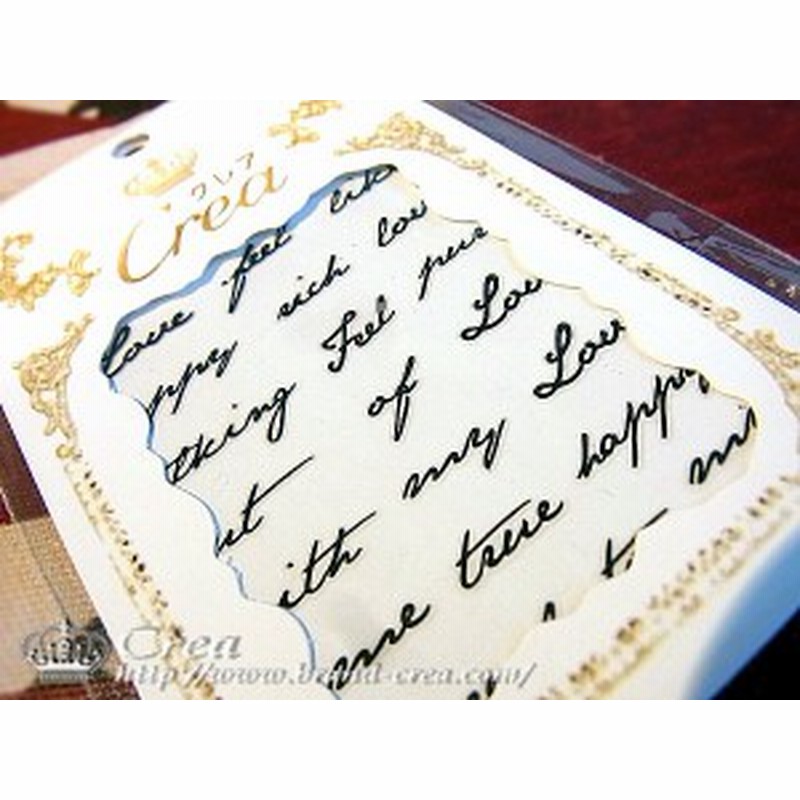 クレア
Crea
love feel like
ppy rich lov
king Feel pure
st of Lov
ith my Lov
me true happy
mi
Crea
http://www.brand-crea.com/